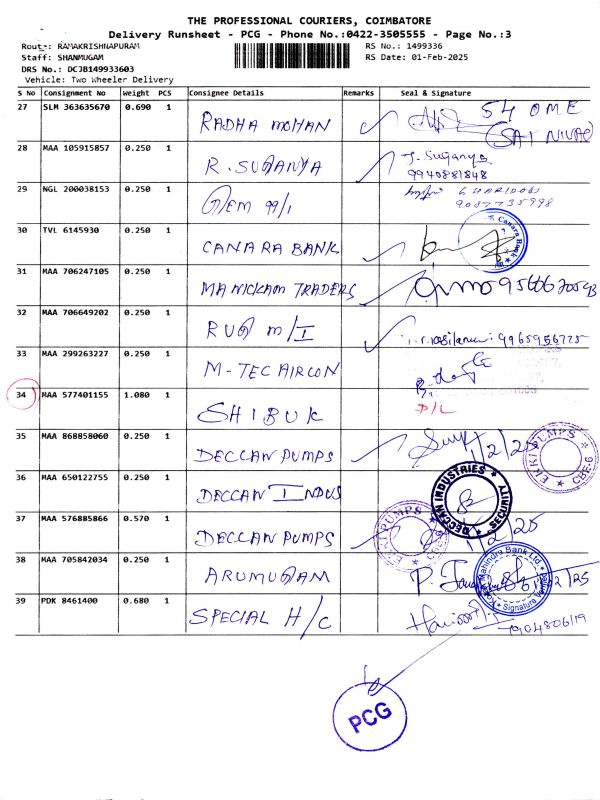 THE PROFESSIONAL COURIERS, COIMBATORE
Delivery Runsheet - PCG - Phone No.:0422-3505555 - Page No.:3
Route: RAMAKRISHNAPURAM
RS No.: 1499336
Staff: SHANMUGAM
RS Date: 01-Feb-2025
DRS No.: DCJB149933603
Vehicle: Two Wheeler Delivery
S No Consignment No Weight PCS Consignee Details Remarks Seal & Signature
27 SLM 363635670 0.690 1 RADHA MOHAN 54 OME
28 MAA 105915857 0.250 1 R. SUGANYA J. Suganya
9940881848
29 NGL 200038153 0.250 1 GEM 99/1
9087735998
30 TVL 6145930 0.250 1 CANARA BANK Canara Bank
31 MAA 706247105 0.250 1 MANICKAM TRADERS
32 MAA 706649202 0.250 1 RUG M/I 9965956725
33 MAA 299263227 0.250 1 M-TEC AIRCON
34 MAA 577401155 1.080 1 SHIBU K D/L
35 MAA 868858060 0.250 1 DECCAN PUMPS 1/2/25 EKKI PUMPS CBE-6
36 MAA 650122755 0.250 1 DECCAN INDUS DECCAN INDUSTRIES SECURITY
37 MAA 576885866 0.570 1 DECCAN PUMPS 1/2/25 EKKI PUMPS
38 MAA 705842034 0.250 1 ARUMUGAM Mahindra Bank Ltd. Signature
39 PDK 8461400 0.680 1 SPECIAL H/C
PCG